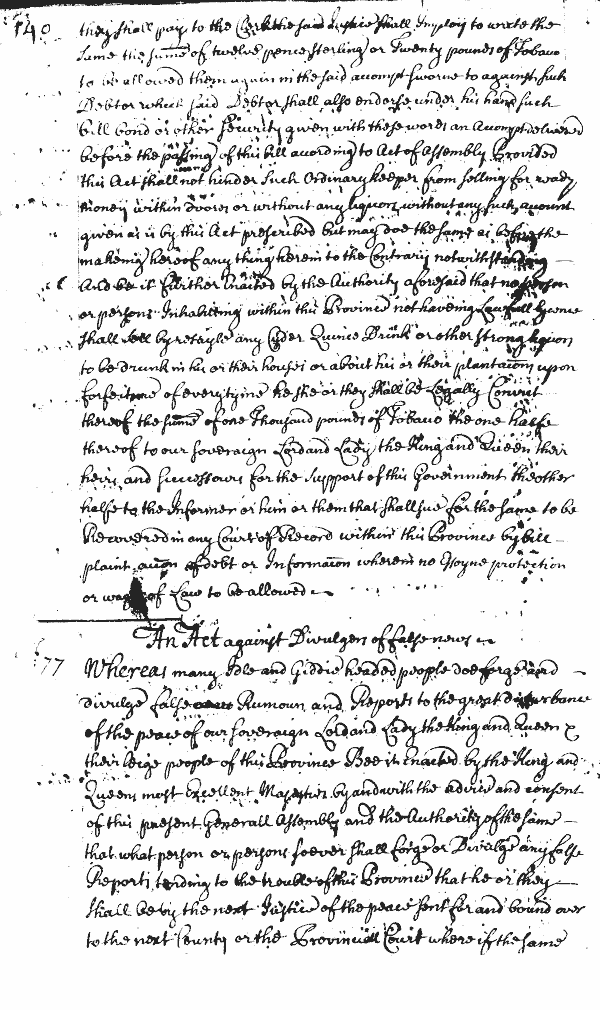 140
they shall pay to the Clerke the said Justice shall Imploy to write the
same the sume of twelve pence sterling or Twenty pounds of Tobaco
to be allowed them again in the said accompt sworne to against such
Debtor which said Debtor shall also endorse under his hand such
bill bond or other security given with these words an Accompt delivered
before the passing of this bill according to Act of Assembly Provided
this Act shall not hinder such Ordinary keeper from selling for ready
money within doors or without any liquors without any such account
given as is by this Act prescribed but may doe the same as before the
makeing hereof any thing herein to the Contrary notwithstanding
And be it Further Enacted by the Authority aforesaid that no person
or persons Inhabiting within this Province not haveing Lawfull lycence
shall sell by retayle any Cyder Quince Drink or other strong liquors
to be drunk in his or their houses or about his or their plantacon upon
forfeiture of every time he she or they shall be Legally Convict
thereof the sume of one Thousand pounds of Tobaco the one halfe
thereof to our Soveraign Lord and Lady the King and Queen their
heirs and Successours for the support of this Government the other
halfe to the Informer or him or them that shall sue for the same to be
Recovered in any Court of Record within this Province by bill
plaint accon of debt or Informacon wherein no Essoyne protection
or wager of Law to be allowed
An Act against Divulgers of false news
77
Whereas many Idle and Giddie headed people doe forge and
divulge false Rumours and Reports to the great disturbance
of the peace of our Soveraign Lord and Lady the King and Queen &
their Leige people of this Province Bee it Enacted by the King and
Queens most Excellent Majesties by and with the advice and consent
of this present Generall Assembly and the Authority of the same
that what person or persons soever shall forge or Divulge any false
Reports tending to the trouble of this Province that he or they
shall be by the next Justice of the peace sent for and bound over
to the next County or the Provinciall Court where if the same